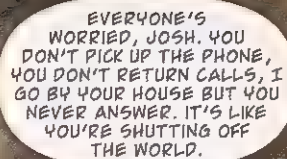 EVERYONE'S
WORRIED, JOSH. YOU
DON'T PICK UP THE PHONE,
YOU DON'T RETURN CALLS, I
GO BY YOUR HOUSE BUT YOU
NEVER ANSWER. IT'S LIKE
YOU'RE SHUTTING OFF
THE WORLD.